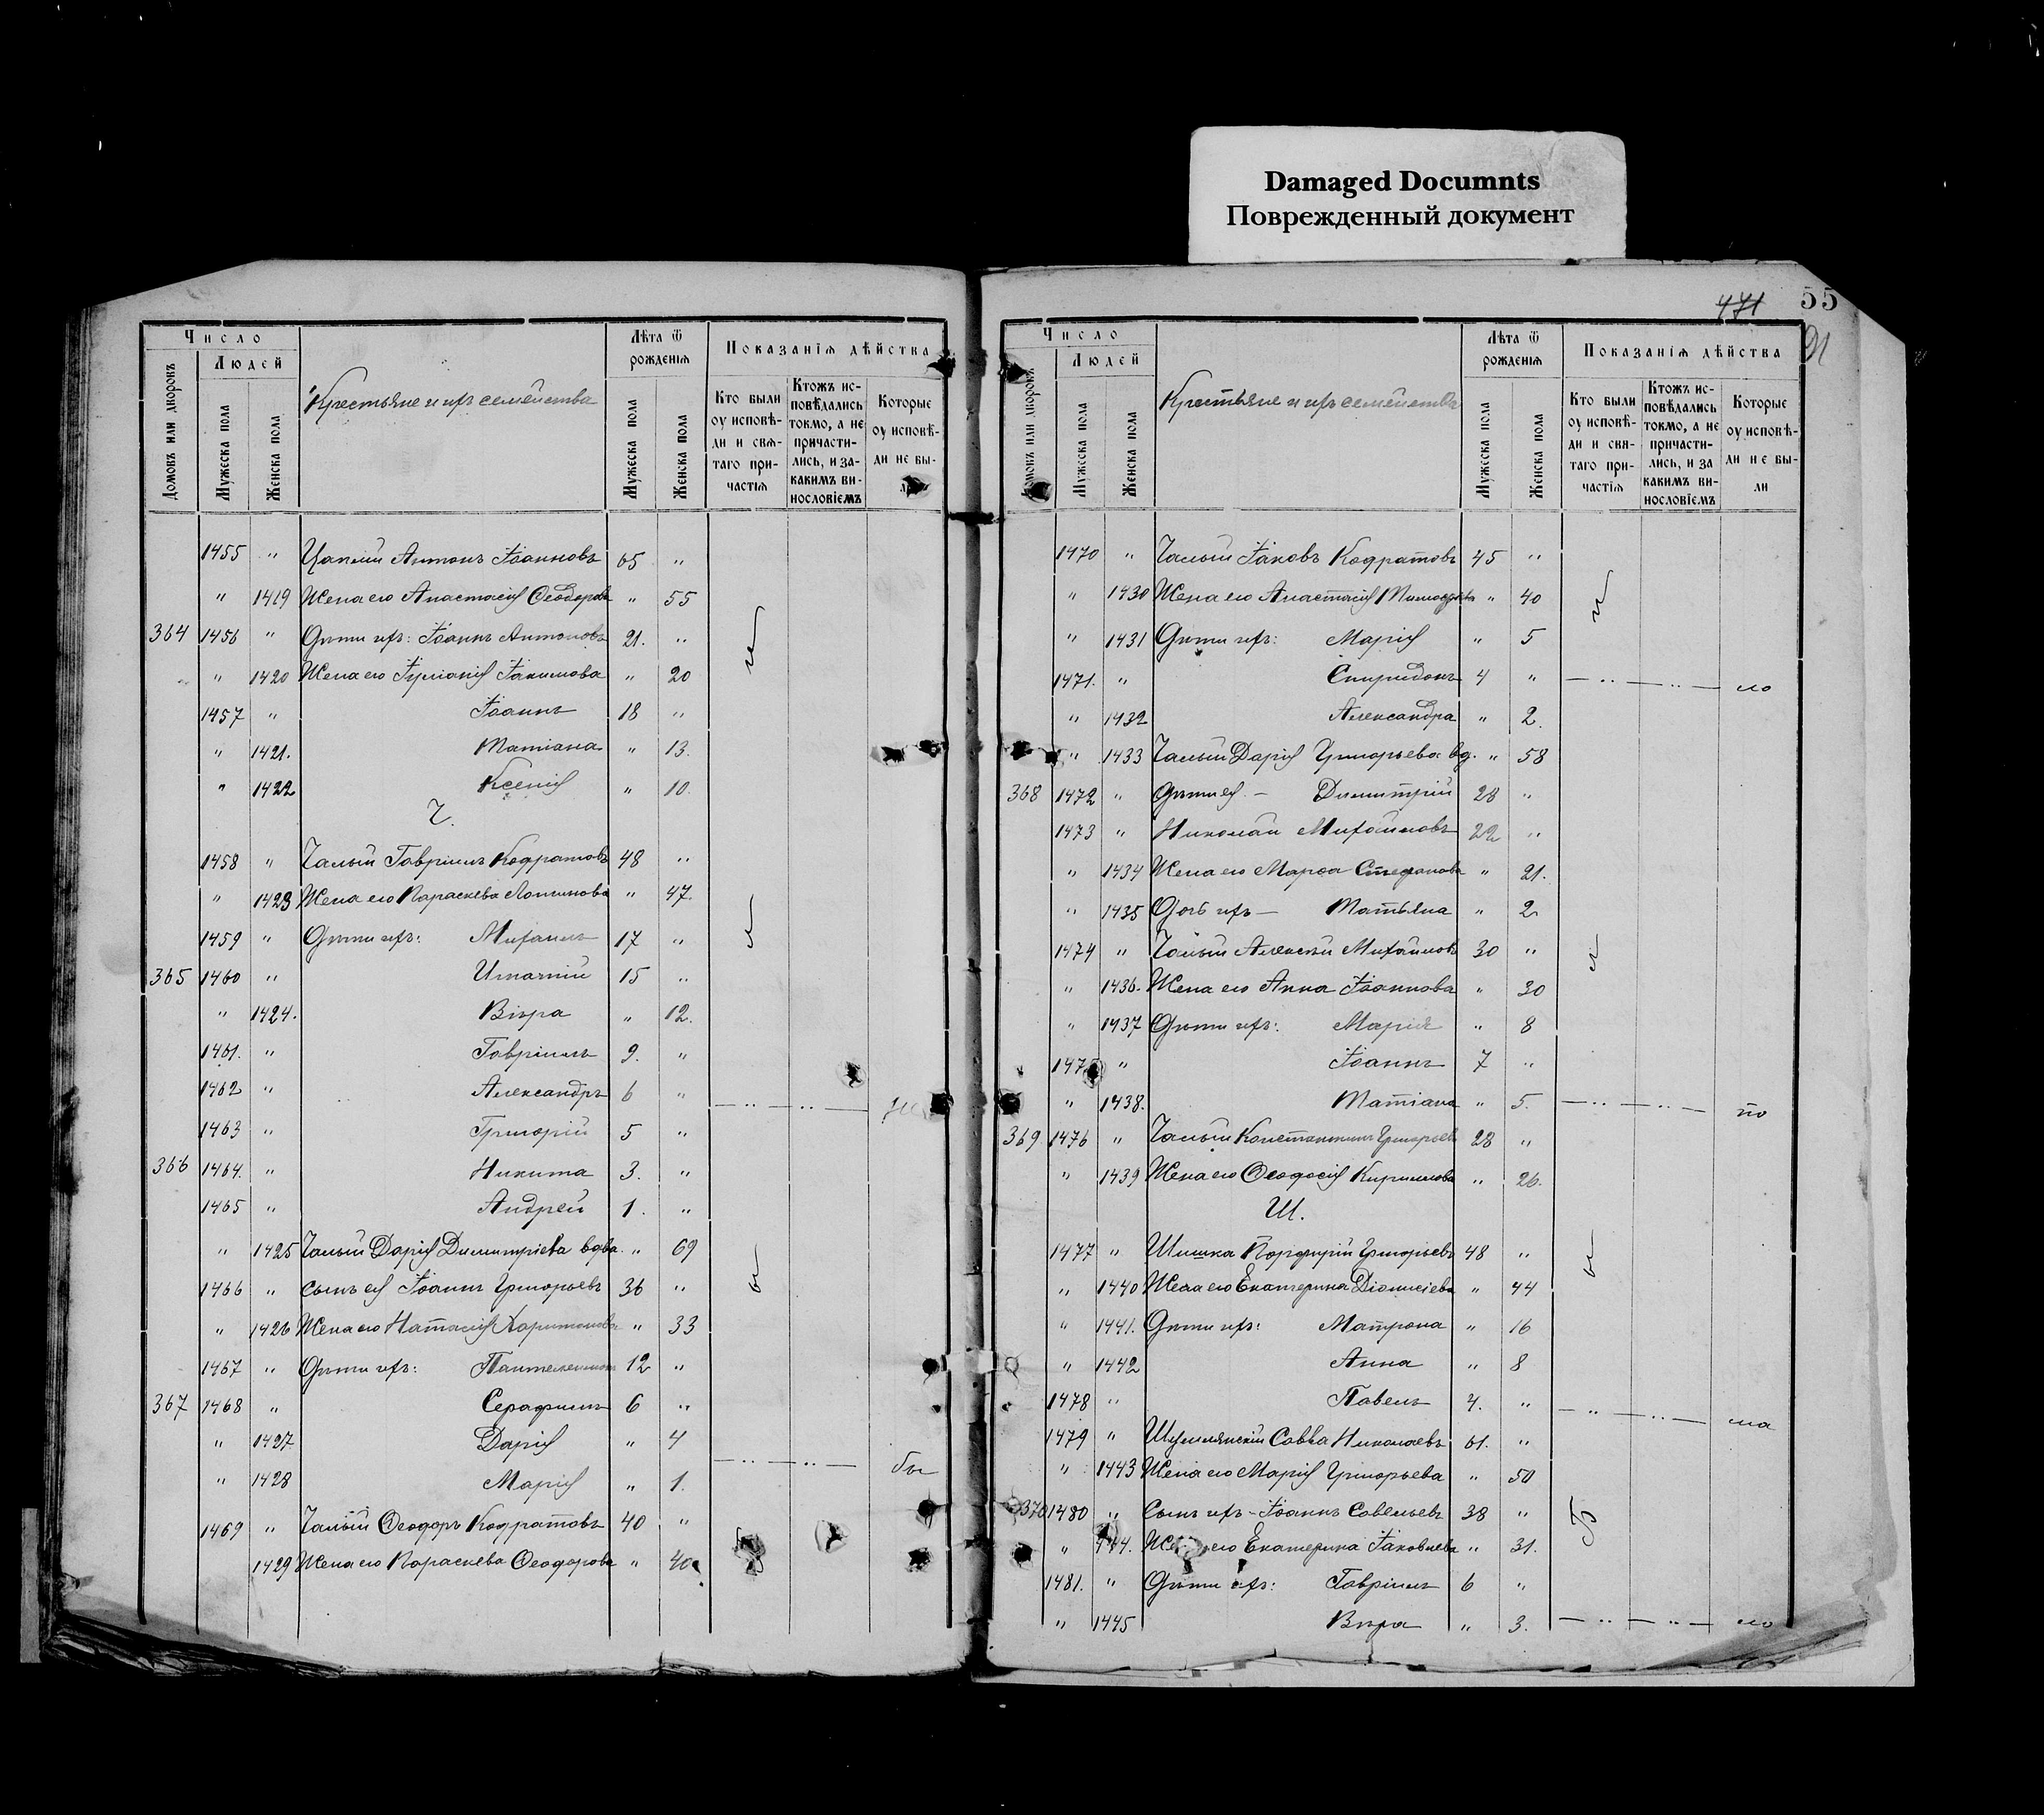 Damaged Documnts
Поврежденный документ
471 55
91
Число
Людей
Домовъ или дворовъ
Мужеска пола
Женска пола
Крестьяне и ихъ семейства
Лѣта ѿ рожденїѧ
Мужеска пола
Женска пола
Показанїѧ дѣйства
Кто были оу исповѣди и свѧтаго причастїѧ
Ктожъ исповѣдались токмо, а не причастились, и за какимъ винословїемъ
Которые оу исповѣди не бы-
1455 " Цапый Антонъ Іоанновъ 65 "
" 1419 Жена его Анастасія Ѳеодорова " 55
364 1456 " Дѣти ихъ: Іоаннъ Антоновъ 21. "
" 1420 Жена его Іуліанія Іакимова " 20
1457 " Іоаннъ 18 "
" 1421. Татіана " 13.
" 1422 Ксенія " 10.
Ч.
1458 " Чалый Гавріилъ Кодратовъ 48 "
" 1423 Жена его Параскева Логинова " 47.
1459 " Дѣти ихъ: Михаилъ 17 "
365 1460 " Игнатій 15 "
" 1424. Вѣра " 12.
1461. " Гавріилъ 9. "
1462 " Александръ 6 "
1463 " Григорій 5 "
366 1464. " Никита 3. "
1465 " Андрей 1. "
" 1425 Чалый Дарія Димитріева вдва. " 69
1466 " Сынъ ея Іоаннъ Григорьевъ 36 "
" 1426 Жена его Наталія Харитонова " 33
1467 " Дѣти ихъ: Пантелеимонъ 12 "
367 1468 " Серафимъ 6 "
" 1427 Дарія " 4
" 1428 Марія " 1.
бы
1469 " Чалый Ѳеодоръ Кодратовъ 40 "
1429 Жена его Параскева Ѳеодорова " 40
Число
Людей
Домовъ или дворовъ
Мужеска пола
Женска пола
Крестьяне и ихъ семейства
Лѣта ѿ рожденїѧ
Мужеска пола
Женска пола
Показанїѧ дѣйства
Кто были оу исповѣди и свѧтаго причастїѧ
Ктожъ исповѣдались токмо, а не причастились, и за какимъ винословїемъ
Которые оу исповѣди не были
1470 " Чалый Іаковъ Кодратовъ 45 "
" 1430 Жена его Анастасія Тимоѳеева " 40
" 1431 Дѣти ихъ: Марія " 5
1471. " Спиридонъ 4 "
ло
" 1432 Александра " 2.
" 1433 Чалый Дарія Григорьева вд. " 58
368 1472 " Дѣти ея – Димитрій 28 "
1473 " Николай Михайловъ 22 "
" 1434 Жена его Марѳа Стефанова " 21.
" 1435 Дочь ихъ – Татьяна " 2
1474 " Чалый Алексѣй Михайловъ 30 "
" 1436. Жена его Анна Іоаннова " 30
" 1437 Дѣти ихъ: Марія " 8
1475 " Іоаннъ 7 "
" 1438. Татіана " 5.
369 1476 " Чалый Константинъ Григорьевъ 28 "
" 1439 Жена его Ѳеодосія Кириллова " 26.
Ш.
1477 " Шишка Порфирій Григорьевъ 48 "
" 1440 Жена его Екатерина Діонисіева " 44
" 1441. Дѣти ихъ: Матрона " 16
" 1442 Анна " 8
1478 " Павелъ 4. "
1479 " Шумлянскій Савва Николаевъ 61. "
" 1443 Жена его Марія Григорьева " 50
370 1480 " Сынъ ихъ – Іоаннъ Савельевъ 38 "
" Жена его Екатерина Іаковлева " 31.
1481. " Дѣти ихъ: Гавріилъ 6 "
" 1445 Вѣра " 3.
ло